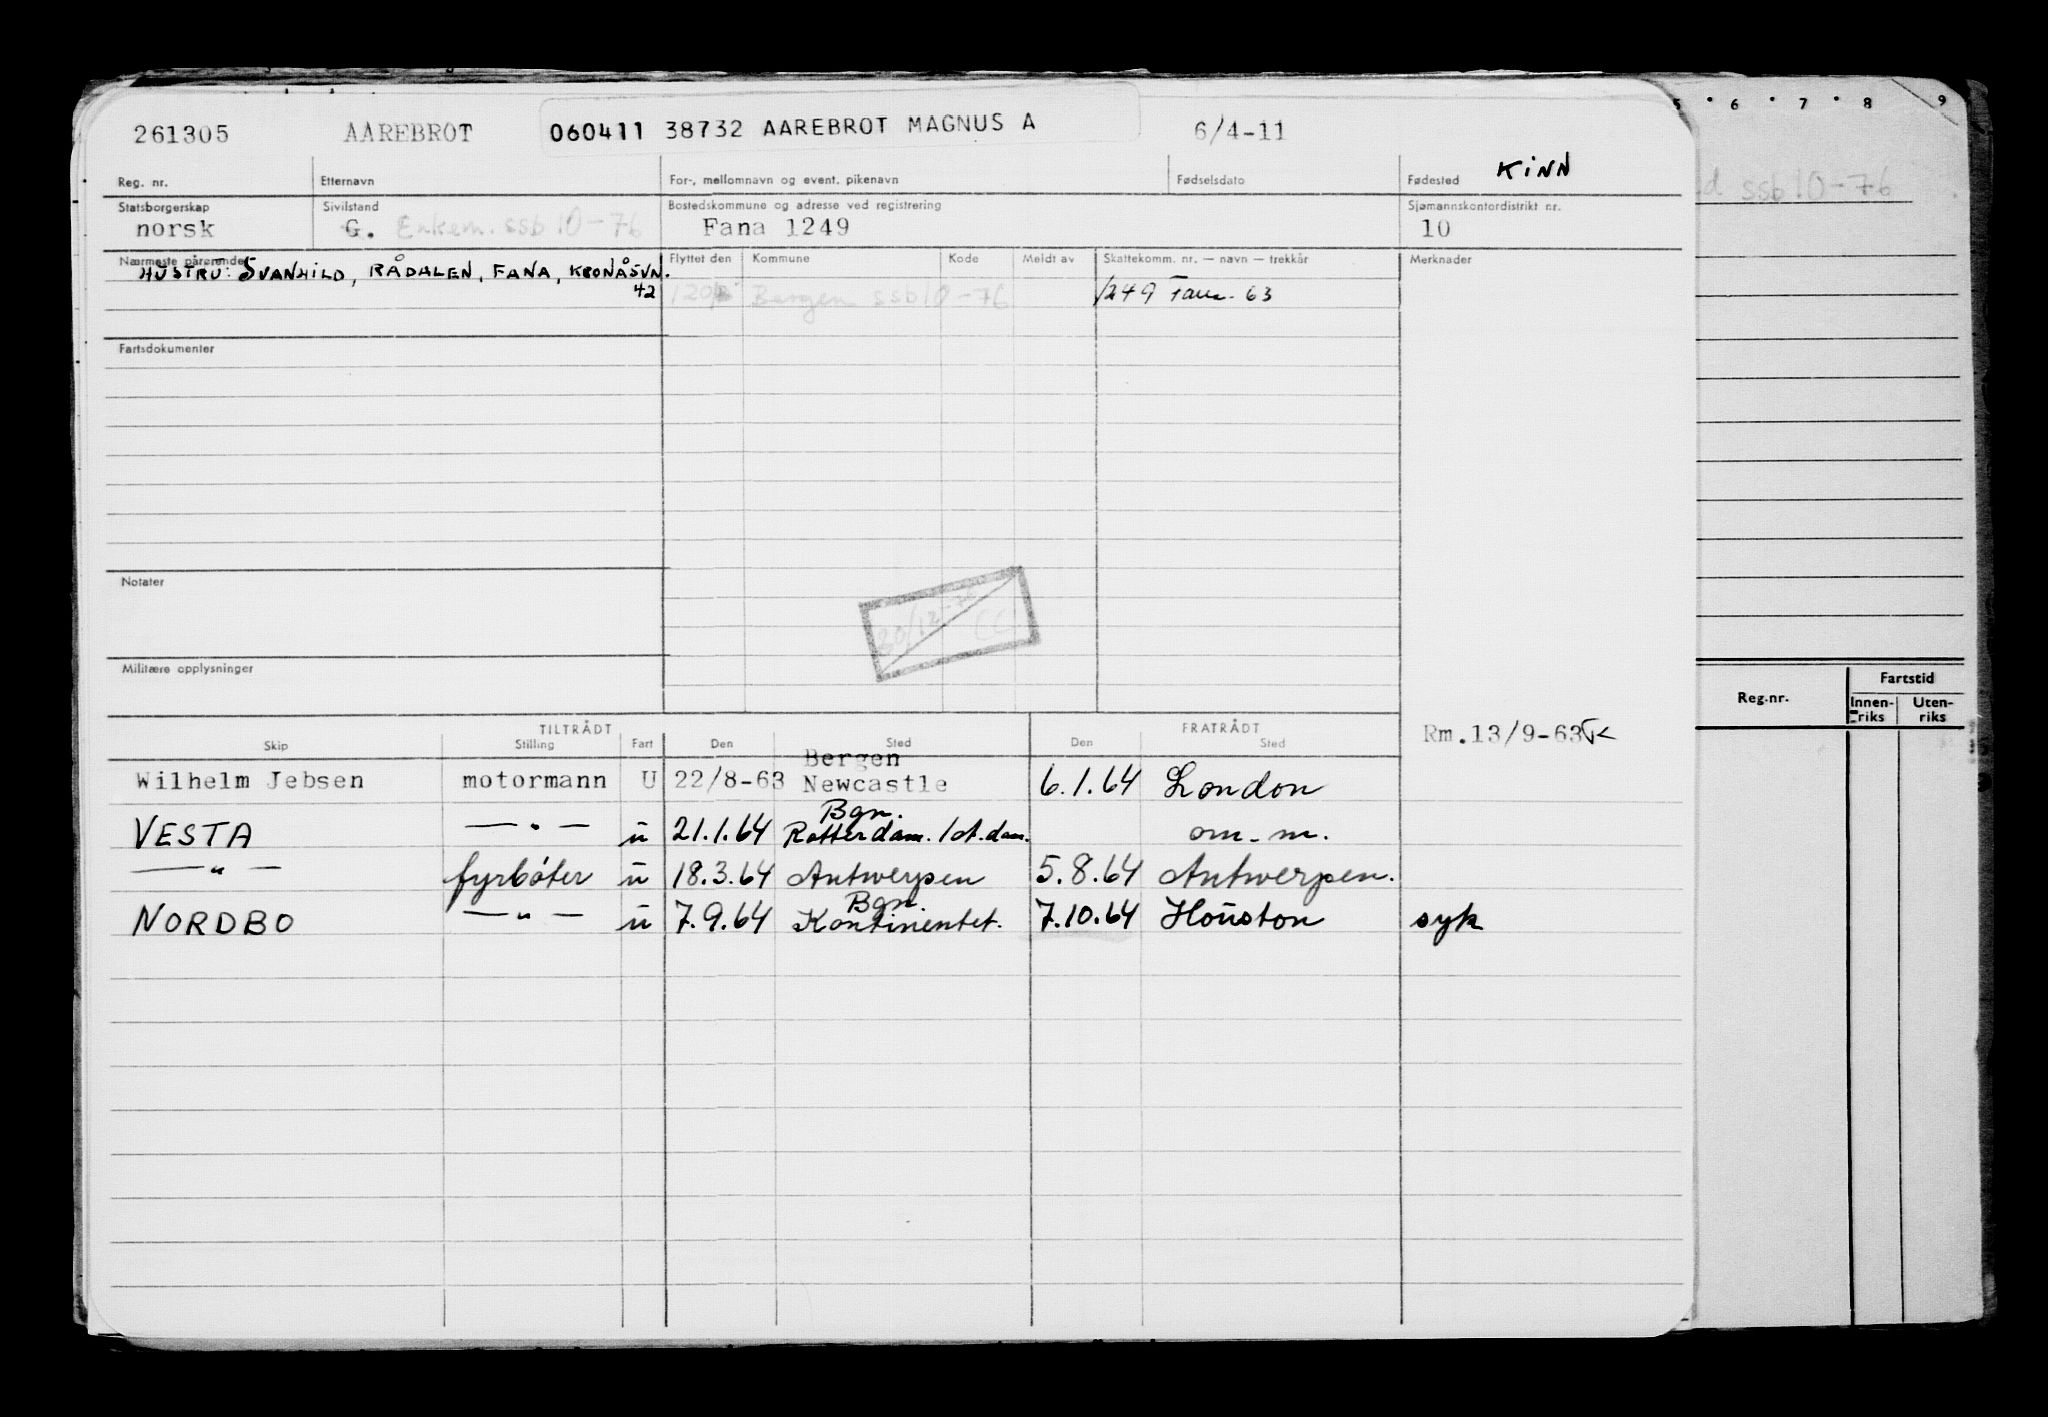 261305 AAREBROT 060411 38732 AAREBROT MAGNUS A 6/4-11 KINN
Reg. nr. Etternavn For-, mellomnavn og event. pikenavn Fødselsdato Fødested
Statsborgerskap Sivilstand Bostedskommune og adresse ved registrering Sjømannskontordistrikt nr.
norsk G. Enkem. ssb 10-76 Fana 1249 10
Nærmeste pårørende Flyttet den Kommune Kode Meldt av Skattekomm. nr. — navn — trekkår Merknader
HUSTRU: SVANHILD, RÅDALEN, FANA, KRONÅSVN.
42 Bergen ssb 10-76 1249 Fana - 63
Fartsdokumenter
Notater
20/12-76
Militære opplysninger
TILTRÅDT FRATRÅDT
Skip Stilling Fart Den Sted Den Sted
Rm.13/9-63
Bergen
Wilhelm Jebsen motormann U 22/8-63 Newcastle 6.1.64 London
Bgn.
VESTA — " — u 21.1.64 Rotterdam. / A.dam. om. m.
— " — fyrbøter u 18.3.64 Antwerpen 5.8.64 Antwerpen.
Bgn.
NORDBO — " — u 7.9.64 Kontinentet. 7.10.64 Houston syk
5 6 7 8 9
d ssb 10-76
Reg.nr. Fartstid
Innen-riks Uten-riks